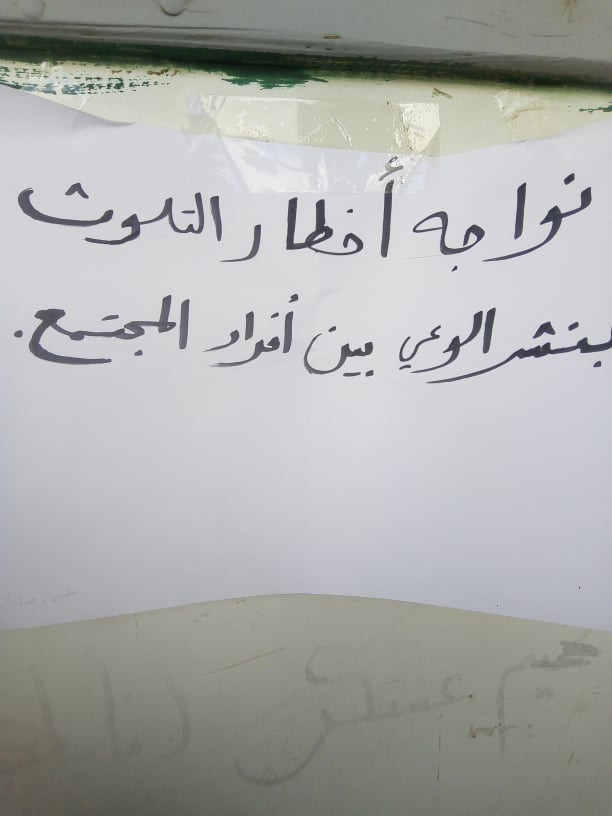 نواجه أخطار التلوث
بنشر الوعي بين أفراد المجتمع.